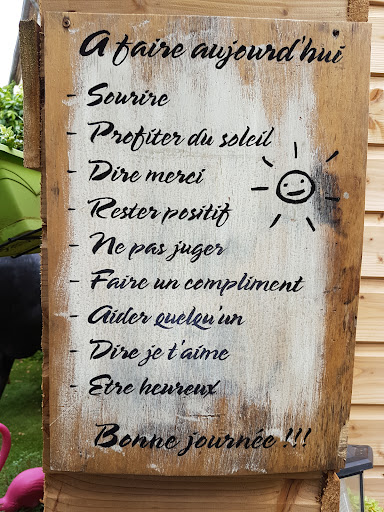 A faire aujourd'hui
- Sourire
- Profiter du soleil
- Dire merci
- Rester positif
- Ne pas juger
- Faire un compliment
- Aider quelqu'un
- Dire je t'aime
- Etre heureux
Bonne journée !!!